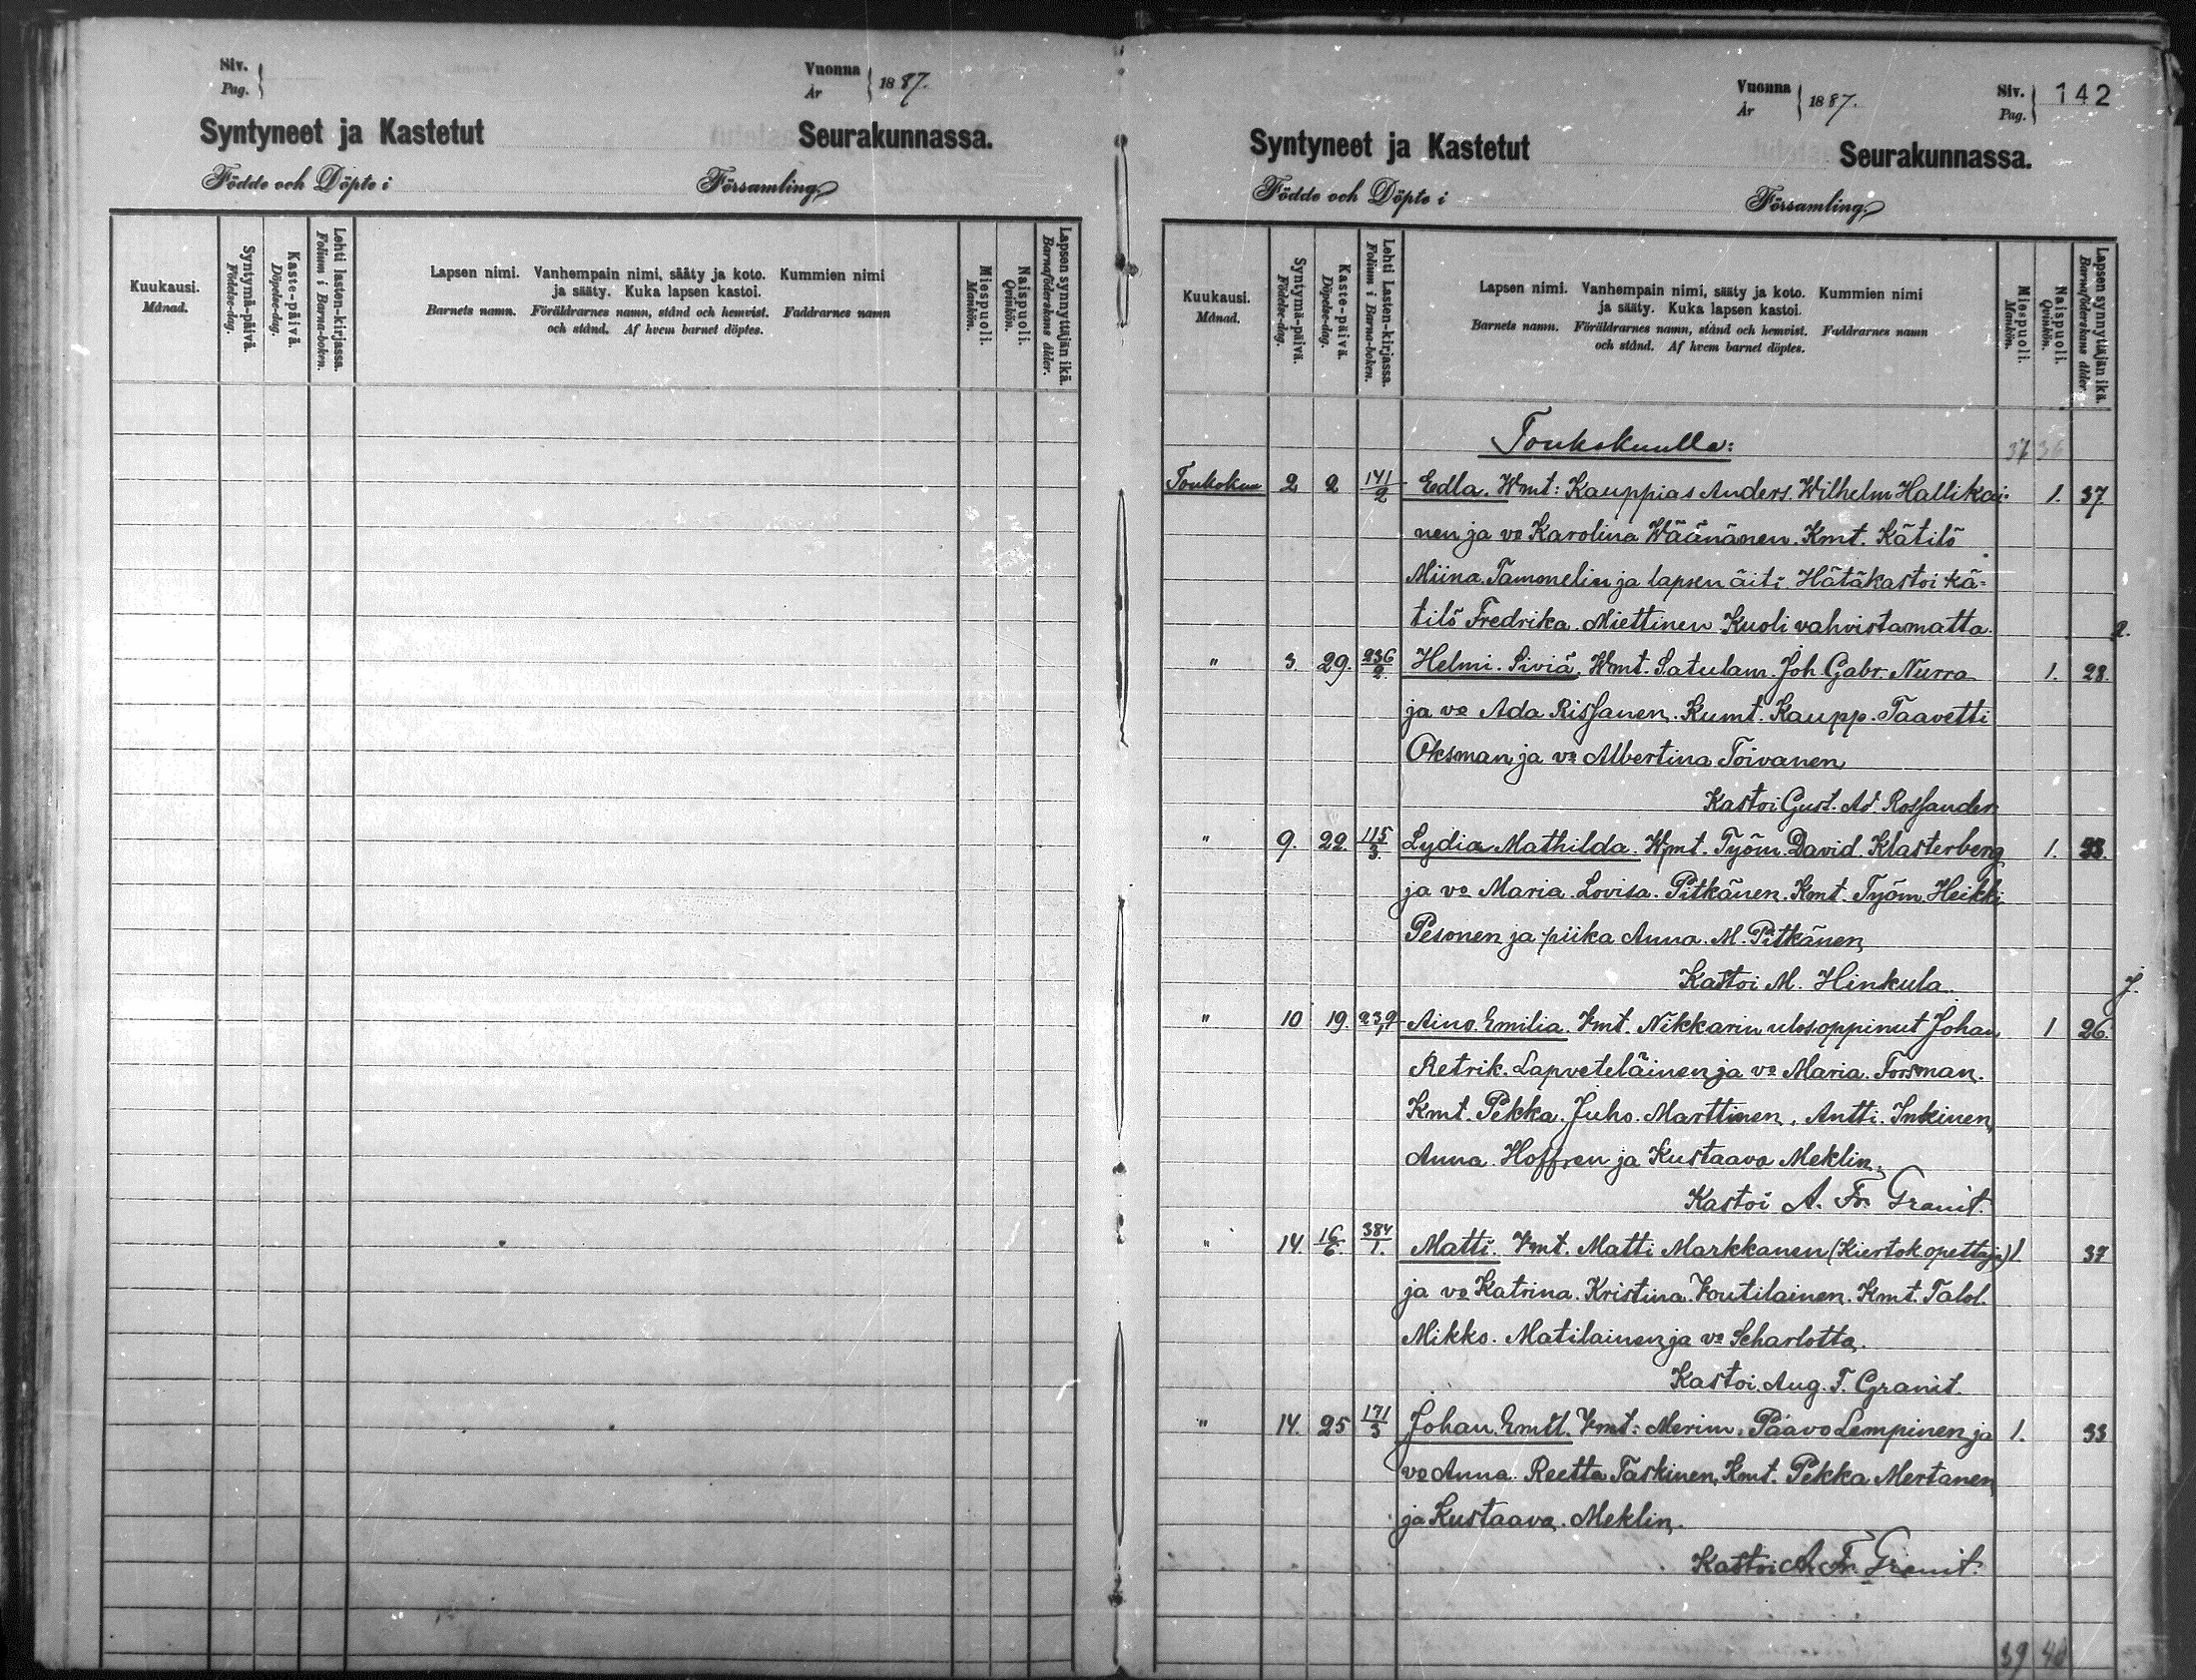 Siv.
Pag.
Vuonna
År
1887.
Syntyneet ja Kastetut Seurakunnassa.
Födde och Döpte i Församling
Kuukausi.
Månad.
Syntymä-päivä.
Födelse-dag.
Kaste-päivä.
Döpelse-dag.
Lehti lasten-kirjassa.
Folium i Barna-boken.
Lapsen nimi. Vanhempain nimi, sääty ja koto. Kummien nimi
ja sääty. Kuka lapsen kastoi.
Barnets namn. Föräldrarnes namn, stånd och hemvist. Faddrarnes namn
och stånd. Af hvem barnet döptes.
Miespuoli.
Mankön.
Naispuoli.
Qvinkön.
Lapsen synnyttäjän ikä.
Barnaföderskans ålder.
Vuonna
År
1887.
Siv.
Pag.
142
Syntyneet ja Kastetut Seurakunnassa.
Födde och Döpte i Församling
Kuukausi.
Månad.
Syntymä-päivä.
Födelse-dag.
Kaste-päivä.
Döpelse-dag.
Lehti Lasten-kirjassa.
Folium i Barna-boken.
Lapsen nimi. Vanhempain nimi, sääty ja koto. Kummien nimi
ja sääty. Kuka lapsen kastoi.
Barnets namn. Föräldrarnes namn, stånd och hemvist. Faddrarnes namn
och stånd. Af hvem barnet döptes.
Miespuoli.
Mankön.
Naispuoli.
Qvinkön.
Lapsen synnyttäjän ikä.
Barnaföderskans ålder.
Toukokuulla: 37 36
Toukokuu 2 2 141/2 Edla. Wmt: Kauppias Anders. Wilhelm Hallikai- 1. 37
nen ja vo Karolina Wäänänen. Kmt. Kätilö
Miina Tammelin ja lapsen äiti. Hätäkastoi kä-
tilö Fredrika. Miettinen Kuoli vahvistamatta. 2.
" 3 29. 236/2. Helmi. Siviä. Wmt. Satulam. Joh. Gabr. Nurra 1. 28.
ja vo Ada Rissanen. Kumt. Kaupp. Taavetti
Oksman ja vo Albertina Toivanen
Kastoi Gust. Ad. Rossander
" 9. 22. 115/3. Lydia Mathilda. Wmt. Työm. David. Klasterberg 1. 33.
ja vo Maria. Lovisa. Pitkänen. Kmt. Työm. Heikki
Pesonen ja piika Anna. M. Pitkänen
Kastoi M. Hinkula. J.
" 10 19. Aino. Emilia. Vmt. Nikkarin ulosoppinut Johan 1 26.
Retrik. Lapveteläinen ja vo Maria. Forsman.
Kmt. Pekka. Juho. Marttinen. Antti. Inkinen,
Anna. Hoffren ja Kustaava Meklin.
Kastoi A. Fr. Granit.
" 14. 16/6. 384/1. Matti. Vmt. Matti Markkanen (Kiertok.opettaja) 1. 37
ja vo Katrina. Kristina. Voutilainen. Kmt. Talol.
Mikko. Matilainen ja vo Scharlotta.
Kastoi. Aug. F. Granit.
" 14. 25 171/3 Johan. Emil. Vmt: Merim. Paavo Lempinen ja 1. 33
vo Anna. Reetta Taskinen. Kmt. Pekka Mertanen
ja Kustaava. Meklin.
Kastoi A. Fr. Granit.
39 40